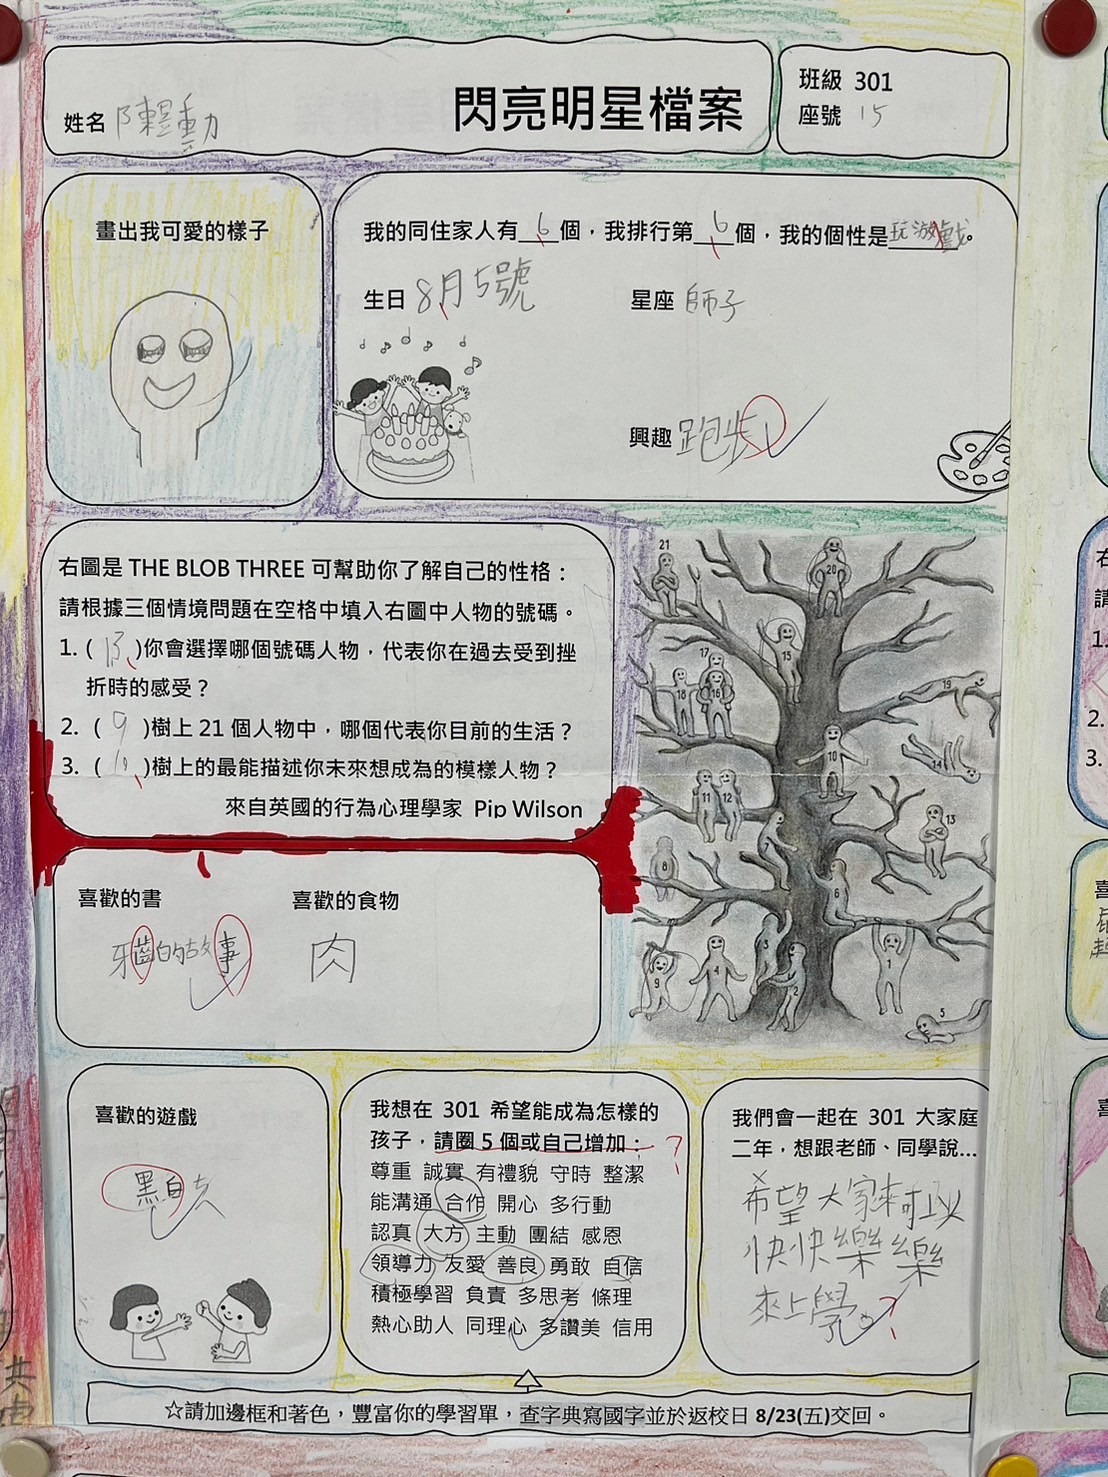 閃亮明星檔案
姓名 陳
班級 301
座號 15
畫出我可愛的樣子
我的同住家人有 6 個，我排行第 6 個，我的個性是玩游戲。
生日 8月5號
星座 師子
興趣 跑步
右圖是 THE BLOB THREE 可幫助你了解自己的性格：
請根據三個情境問題在空格中填入右圖中人物的號碼。
1. ( 13 )你會選擇哪個號碼人物，代表你在過去受到挫
折時的感受？
2. ( 9 )樹上 21 個人物中，哪個代表你目前的生活？
3. ( 10 )樹上的最能描述你未來想成為的模樣人物？
來自英國的行為心理學家 Pip Wilson
21
20
15
17
18
16
19
10
14
11
12
13
8
6
3
4
9
2
1
5
喜歡的書
牙齒的故事
喜歡的食物
肉
喜歡的遊戲
黑白
我想在 301 希望能成為怎樣的
孩子，請圈 5 個或自己增加：
?
尊重 誠實 有禮貌 守時 整潔
能溝通 合作 開心 多行動
認真 大方 主動 團結 感恩
領導力 友愛 善良 勇敢 自信
積極學習 負責 多思考 條理
熱心助人 同理心 多讚美 信用
我們會一起在 301 大家庭
二年，想跟老師、同學說...
希望大家
快快樂樂
來上學。
?
☆請加邊框和著色，豐富你的學習單，查字典寫國字並於返校日 8/23(五)交回。